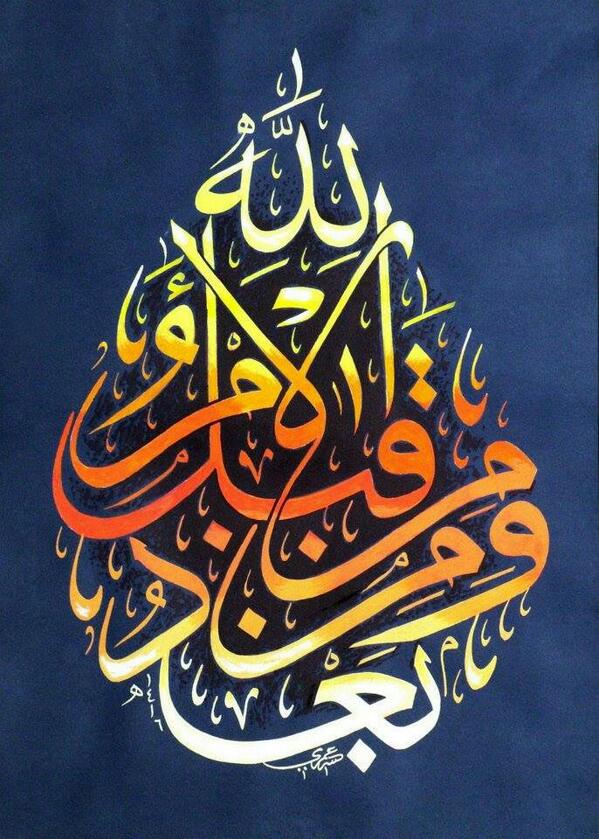 لِلَّهِ الْأَمْرُ مِنْ قَبْلُ وَمِنْ بَعْدُ
١٤١٦ هـ